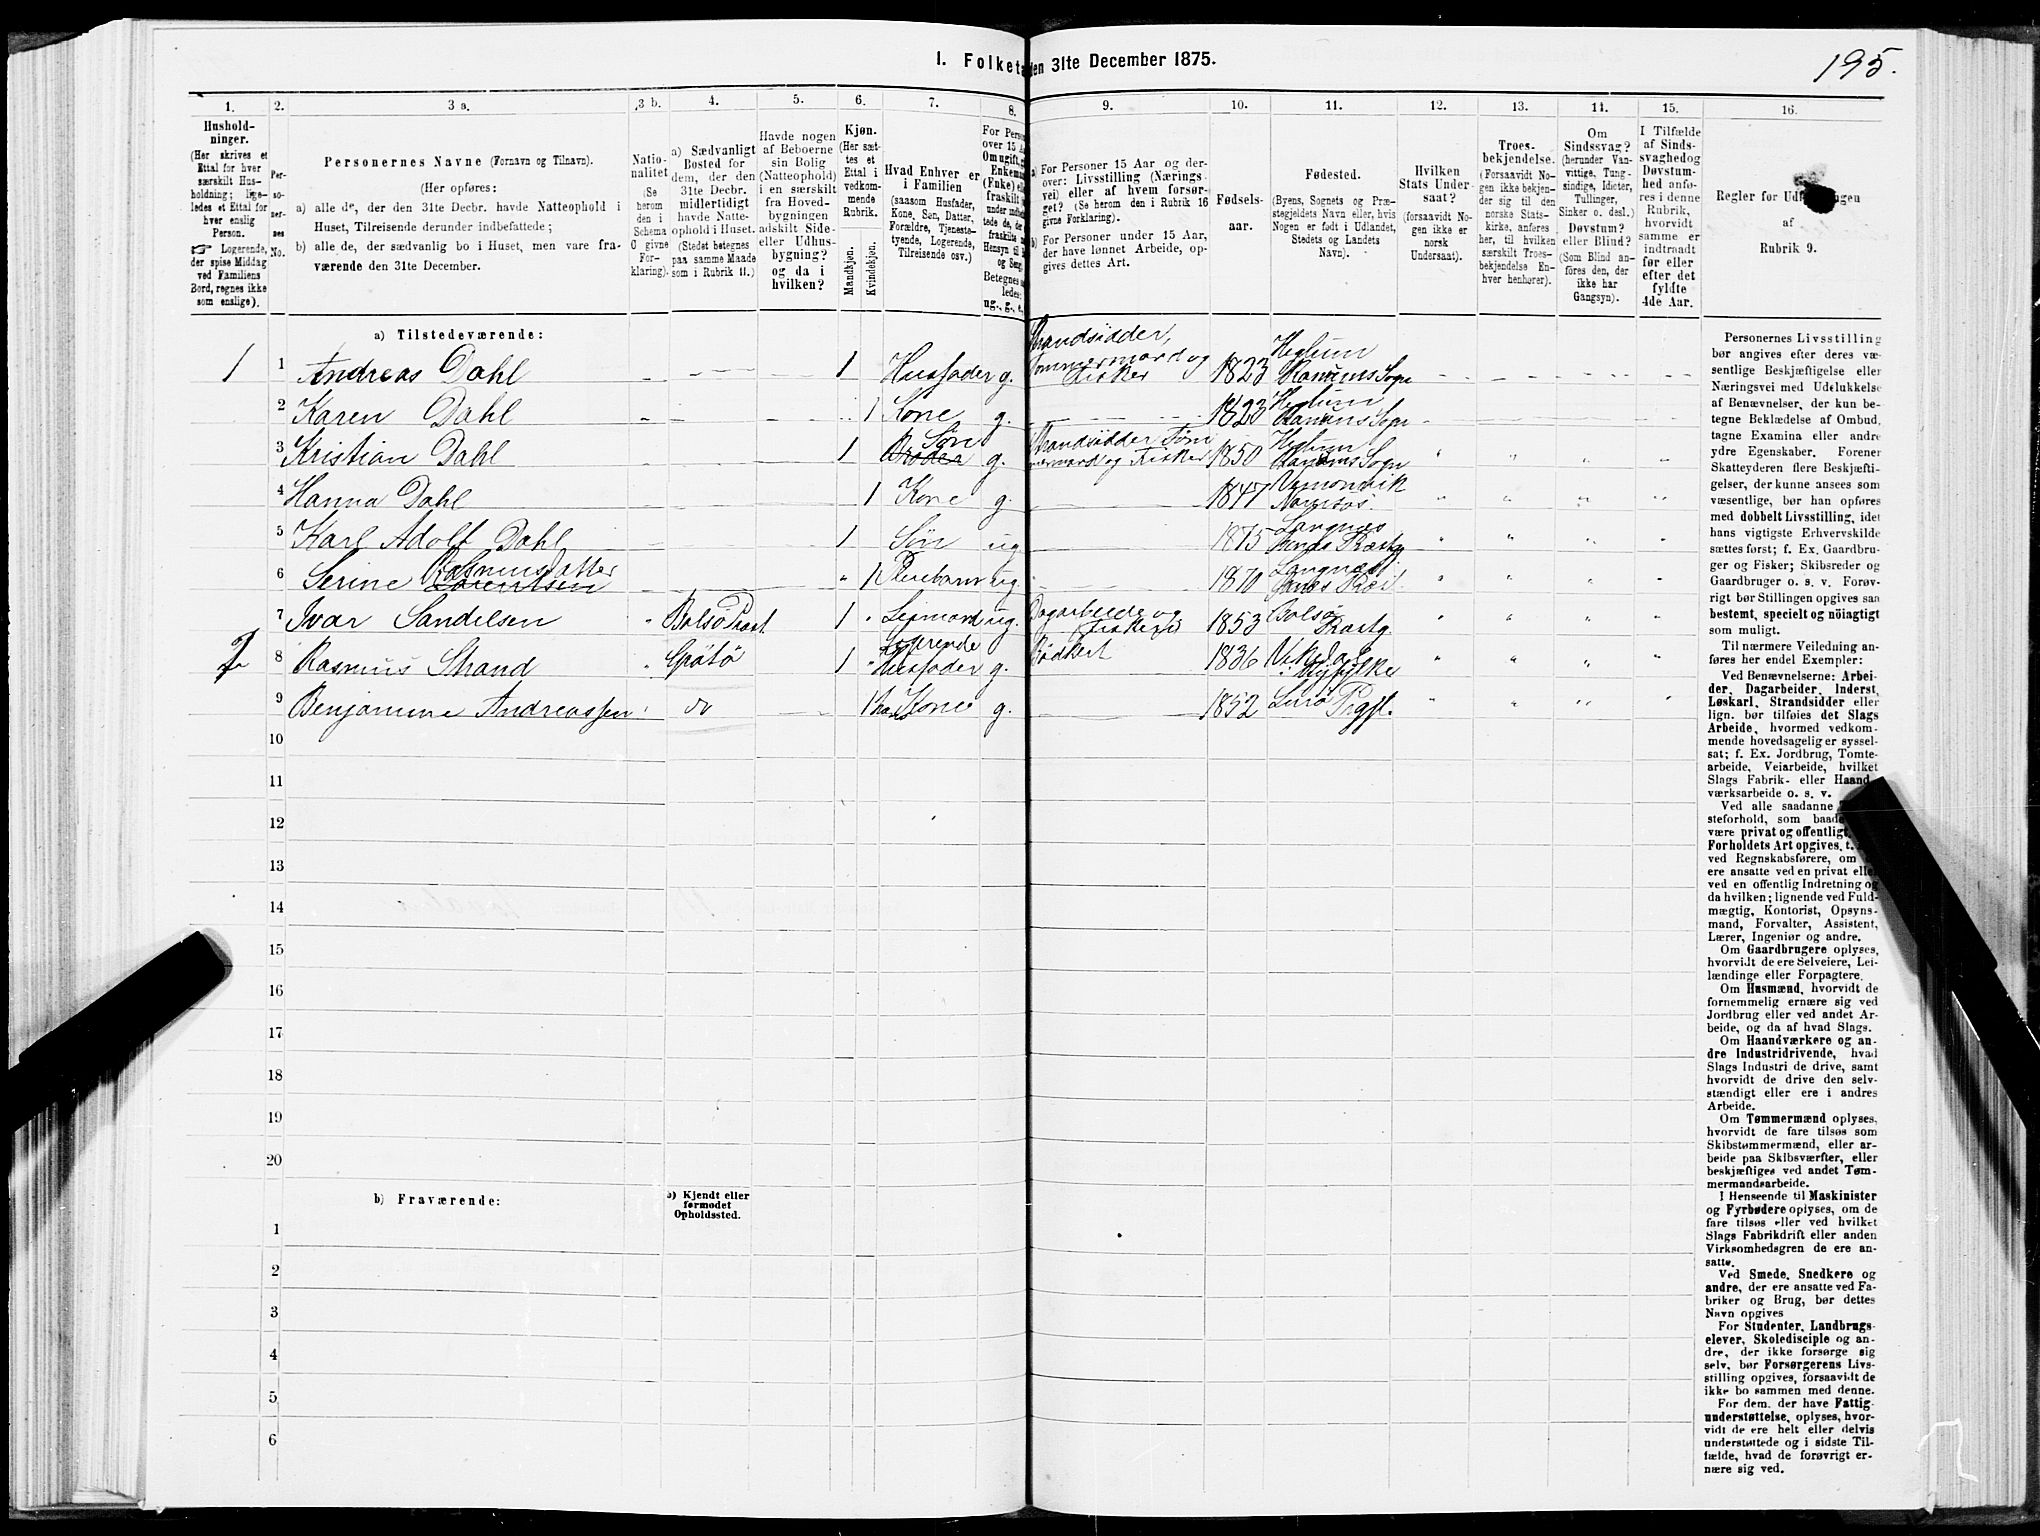 I. Folketæ
den 31te December 1875.
195.
1.
2.
3 a.
3 b.
4.
5.
6.
7.
8.
9.
10.
11.
12.
13.
11.
15.
16.
Hushold-
ninger.
(Her skrives et
Ettal for hver
særskilt Hus-
holdning; lige-
ledes et Ettal for
hver enslig
Person.
☞ Logerende,
der spise Middag
ved Familiens
Bord, regnes ikke
som enslige).
Per-
so-
ner-
nes
No.
Personernes Navne (Fornavn og Tilnavn).
(Her opføres:
a) alle de, der den 31te Decbr. havde Natteophold i
Huset, Tilreisende derunder indbefattede;
b) alle de, der sædvanlig bo i Huset, men vare fra-
værende den 31te December.
Natio-
nalitet
(Se
herom
den i
Schema
C givne
For-
klaring).
a) Sædvanligt
Bosted for
dem, der den
31te Decbr.
midlertidigt
havde Natte-
ophold i Huset.
(Stedet betegnes
paa samme Maade
som i Rubrik 11.)
Havde nogen
af Beboerne
sin Bolig
(Natteophold)
i en særskilt
fra Hoved-
bygningen
adskilt Side-
eller Udhus-
bygning?
og da i
hvilken?
Kjøn.
(Her sæt-
tes et
Ettal i
vedkom-
mende
Rubrik.
Mandkjøn.
Kvindekjøn.
Hvad Enhver er
i Familien
(saasom Husfader,
Kone, Søn, Datter,
Forældre, Tjeneste-
tyende, Logerende,
Tilreisende osv.)
For Perso
over 15 A
Om ugift,
Enkema
(Fuke) el
a) For Personer 15 Aar og der-
over: Livsstilling (Nærings-
vei) eller af hvem forsør-
get? (Se herom den i Rubrik 16
givne Forklaring).
b) For Personer under 15 Aar,
der have lønnet Arbeide, op-
gives dettes Art.
Fødsels-
aar.
Fødested.
(Byens, Sognets og Præ-
stegjeldets Navn eller, hvis
Nogen er født i Udlandet,
Stedets og Landets
Navn).
Hvilken
Stats Under-
saat?
(forsaavidt No-
gen ikke er
norsk
Undersaat).
Troes-
bekjendelse.
(Forsaavidt No-
gen ikke bekjen-
der sig til den
norske Stats-
kirke, anføres
her, til hvilken
særskilt Troes-
bekjendelse En-
hver henhører).
Om
Sindssvag?
(herunder Van-
vittige, Tung-
sindige, Idioter,
Tullinger,
Sinker o. desl.)
Døvstum?
eller Blind?
(Som Blind an-
føres den, der
ikke har
Gangsyn).
I Tilfælde
af Sinds-
svaghedog
Døvstum-
hed anfø-
res i denne
Rubrik,
hvorvidt
samme er
indtraadt
før eller
efter det
fyldte
4de Aar.
Regler for Udf
af
Rubrik 9.
a) Tilstedeværende:
1 1 Andreas Dahl 1 Husfader g. Strandsidder, Tømmermand og Fisker 1823 Heglum Ranums Sogn
2 Karen Dahl 1 Kone g. 1823 Heglum Ranums Sogn
3 Kristian Dahl 1 Broder Søn g. Strandsidder Tøm mermand og Fisker 1850 Heglum Ranums Sogn
4 Hanna Dahl 1 Kone g. 1847
5 Karl Adolf Dahl 1 Søn ug 1875 Langnæs
6 Serine Lorentsen Rasmusdatter 1 Pleiebarn ug. 1870 Langnæs
7 Ivar Sandelsen Bolsø Præst. 1 ug. Dagarbeide og Fiskeri 1853 Bolsø Præstg.
2 8 Rasmus Strand 1 Logerende Husfader g. Bødkert 1836 Vikedal i Ryfylke
9 Benjamine Andreassen do 1 hans Kone g. 1852 Lurø Prgjl.
10
11
12
13
14
15
16
17
18
19
20
b) Fraværende:
b) Kjendt eller
formodet
Opholdssted.
1
2
3
4
5
6
Personernes Livsstilling
bør angives efter deres væ-
sentlige Beskjæftigelse eller
Næringsvei med Udelukkelse
af Benævnelser, der kun be-
tegne Beklædelse af Ombud,
tagne Examina eller andre
ydre Egenskaber. Forener
Skatteyderen flere Beskjæfti-
gelser, der kunne ansees som
væsentlige, bør han opføres
med dobbelt Livsstilling, idet
hans vigtigste Erhvervskilde
sættes først; f. Ex. Gaardbru-
ger og Fisker; Skibsreder og
Gaardbruger o. s. v. Forøv-
rigt bør Stillingen opgives saa
bestemt, specielt og nøiagtigt
som muligt.
Til nærmere Veiledning an-
føres her endel Exempler:
Ved Benævnelserne: Arbei-
der, Dagarbeider, Inderst,
Løskarl, Strandsidder eller
lign. bør tilføies det Slags
Arbeide, hvormed vedkom-
mende hovedsagelig er syssel-
sat; f. Ex. Jordbrug, Tomte-
arbeide, Veiarbeide, hvilket
Slags Fabrik- eller Haand-
værksarbeide o. s. v.
Ved alle saadanne
steforhold, som baade
være privat og offentligt,
Forholdets Art opgives, t.
ved Regnskabsførere, om
ere ansatte ved en privat elle
ved en offentlig Indretning og
da hvilken; lignende ved Fuld-
mægtig, Kontorist, Opsyns-
mand, Forvalter, Assistent,
Lærer, Ingeniør og andre.
Om Gaardbrugere oplyses,
hvorvidt de ere Selveiere, Lei-
lændinge eller Forpagtere.
Om Husmænd, hvorvidt de
fornemmelig ernære sig ved
Jordbrug eller ved andet Ar-
beide, og da af hvad Slags.
Om Haandværkere og an-
dre Industridrivende, hvad
Slags Industri de drive, samt
hvorvidt de drive den selv-
stændigt eller ere i andres
Arbeide.
Om Tømmermænd oplyses,
hvorvidt de fare tilsøs som
Skibstømmermænd, eller ar-
beide paa Skibsværfter, eller
beskjæftiges ved andet Tøm-
mermandsarbeide.
I Henseende til Maskinister
og Fyrbødere oplyses, om de
fare tilsøs eller ved hvilket
Slags Fabrikdrift eller anden
Virksomhedsgren de ere an-
satte.
Ved Smede, Snedkere og
andre, der ere ansatte ved Fa-
briker og Brug, bør dettes
Navn opgives
For Studenter, Landbrugs-
elever, Skoledisciple og an-
dre, der ikke forsørge sig
selv, bør Forsørgerens Livs-
stilling opgives, forsaavidt de
ikke bo sammen med denne.
For dem, der have Fattig-
understøttelse, oplyses, hvor-
vidt de ere helt eller delvis
understøttede og i sidste Til-
fælde, hvad de forøvrigt er-
nære sig ved.